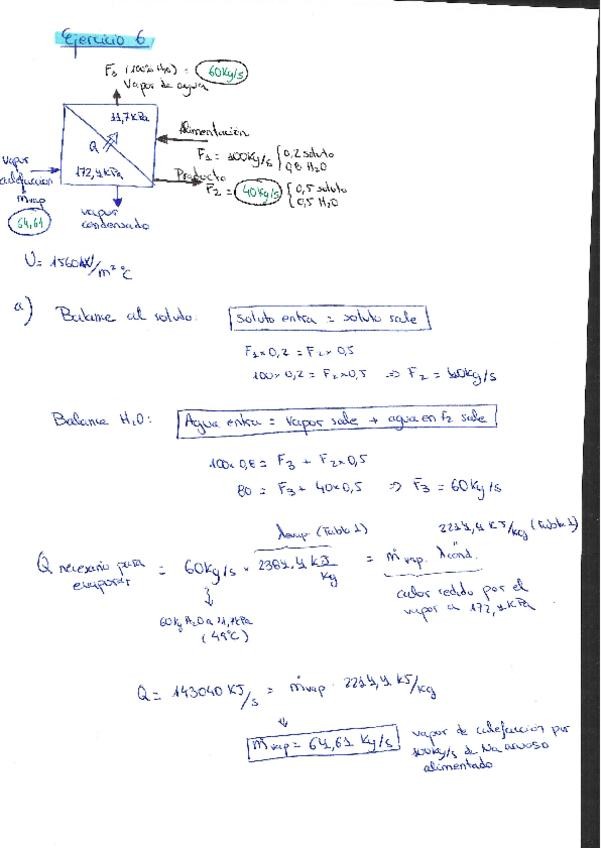 Ejercicio 6
F3 (100% H2O) = 60Kg/s
Vapor de agua
11,7kPa
Q
172,4kPa
Alimentación
F1 = 100Kg/s { 0,2 soluto
0,8 H2O
Producto
F2 = 40Kg/s { 0,5 soluto
0,5 H2O
Vapor
calefaccion
mvap
64,61
vapor
condensado
U = 1560 W/m² °C
a) Balance al soluto: soluto entra = soluto sale
F1 × 0,2 = F2 × 0,5
100 × 0,2 = F2 × 0,5 => F2 = 40Kg/s
Balance H2O: Agua entra = Vapor sale + agua en F2 sale
100 × 0,8 = F3 + F2 × 0,5
80 = F3 + 40 × 0,5 => F3 = 60Kg/s
λevap (Tabla 1)
2214,4 KJ/Kg (Tabla 1)
Q necesario para evaporar = 60Kg/s × KJ/Kg = ṁvap. λcond.
60Kg H2O a 11,7kPa
(49°C)
calor cedido por el
vapor a 172,4kPa
Q = 143040 KJ/s = ṁvap · 2214,4 KJ/Kg
ṁvap = 64,61 Kg/s
vapor de calefaccion por
100Kg/s de
alimentado